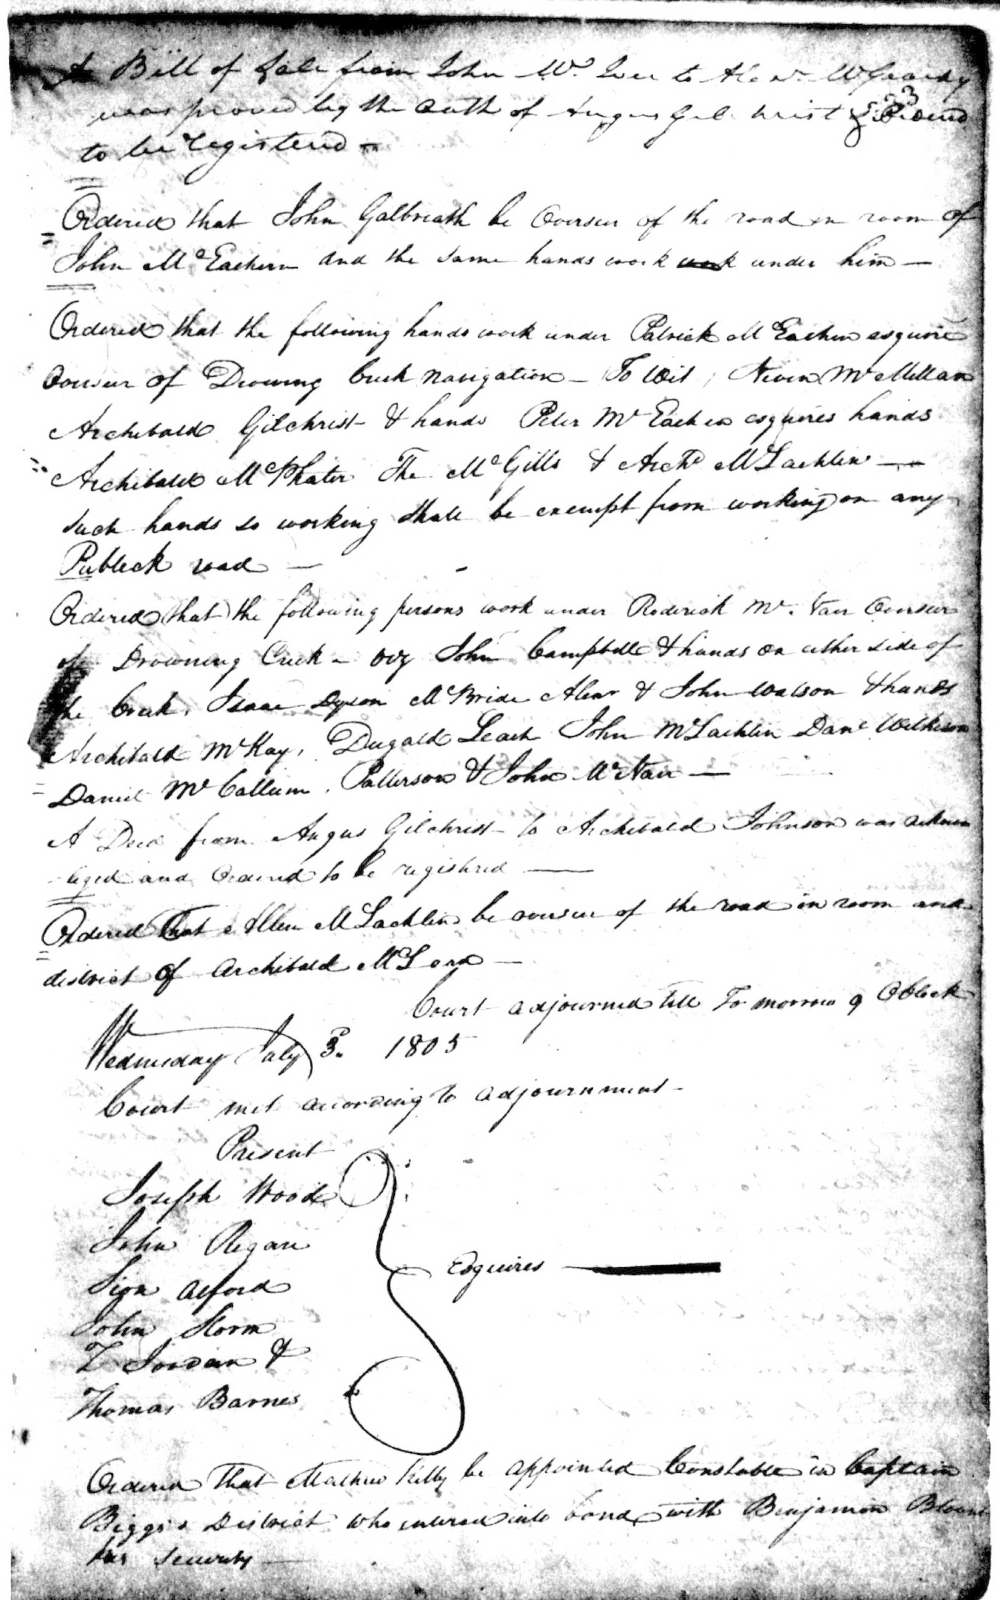 A Bill of Sale from John Mc to Alexr
was proved by the Oath of Angus Gilchrist & Ordered
to be registered
Ordered that John Galbreath be Overseer of the road in room of
John McEachern and the same hands work work under him —
Ordered that the following hands work under Patrick McEachen esquire
Overseer of Drowning Creek navigation — To Wit, Niven McMillan
Archibald Gilchrist & hands Peter McEachen esquires hands
Archibald McPhater The McGills & Archd McLachlin —
such hands so working shall be exempt from working on any
Publick road —
Ordered that the following persons work under Roderick Mc.Nair Overseer
of Drowning Creek - viz John Campbell & hands on either side of
the Creek, Isaac Dyson McBride Alexr & John Watson & hands
Archibald McKay, Dugald Leach John McLachlin Danl Wilkeson
Daniel McCallum, Patterson & John McNair —
A Deed from Angus Gilchrist to Archibald Johnson was acknow
leged and Ordered to be registred —
Ordered that Allen McLachlin be overseer of the road in room and
district of Archibald
Court adjourned till To morrow 9 OClock
Wednesday July 3d. 1805
Court met according to adjournment -
Present
Joseph Wood
John Regan
Sion Alford
John Storm
Jordan &
Thomas Barnes
Esquires —
Ordered that Mathew Kelly be appointed Constable in Captain
Biggs's District who entered into bond with Benjamin Blount
his security —